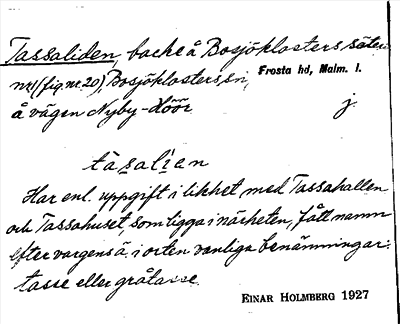 Tassaliden, backe å Bosjöklosters säteri
nr 1 (fig. nr. 20), Bosjöklosters sn, Frosta hd, Malm. l.
å vägen Nyby-Höör j.
tàsalien
Har enl. uppgift i likhet med Tassahallen
och Tassahuset, som ligga i närheten, fått namn
efter vargens å i orten vanliga benämningar:
tasse eller gråtasse.
EINAR HOLMBERG 1927